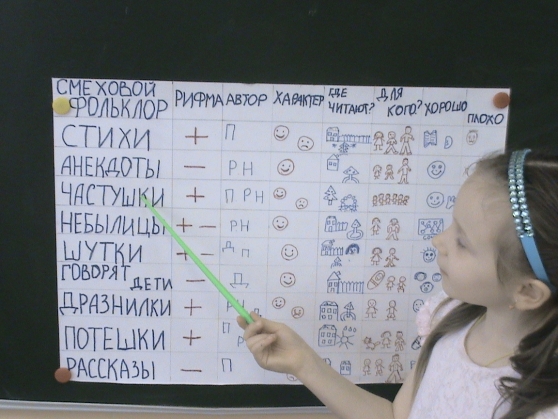 СМЕХОВОЙ ФОЛЬКЛОР РИФМА АВТОР ХАРАКТЕР ГДЕ ЧИТАЮТ? ДЛЯ КОГО? ХОРОШО ПЛОХО
СТИХИ + П
АНЕКДОТЫ — РН
ЧАСТУШКИ + П РН
НЕБЫЛИЦЫ + — РН
ШУТКИ + — Д П
ГОВОРЯТ ДЕТИ — Д
ДРАЗНИЛКИ +
ПОТЕШКИ + П
РАССКАЗЫ — П